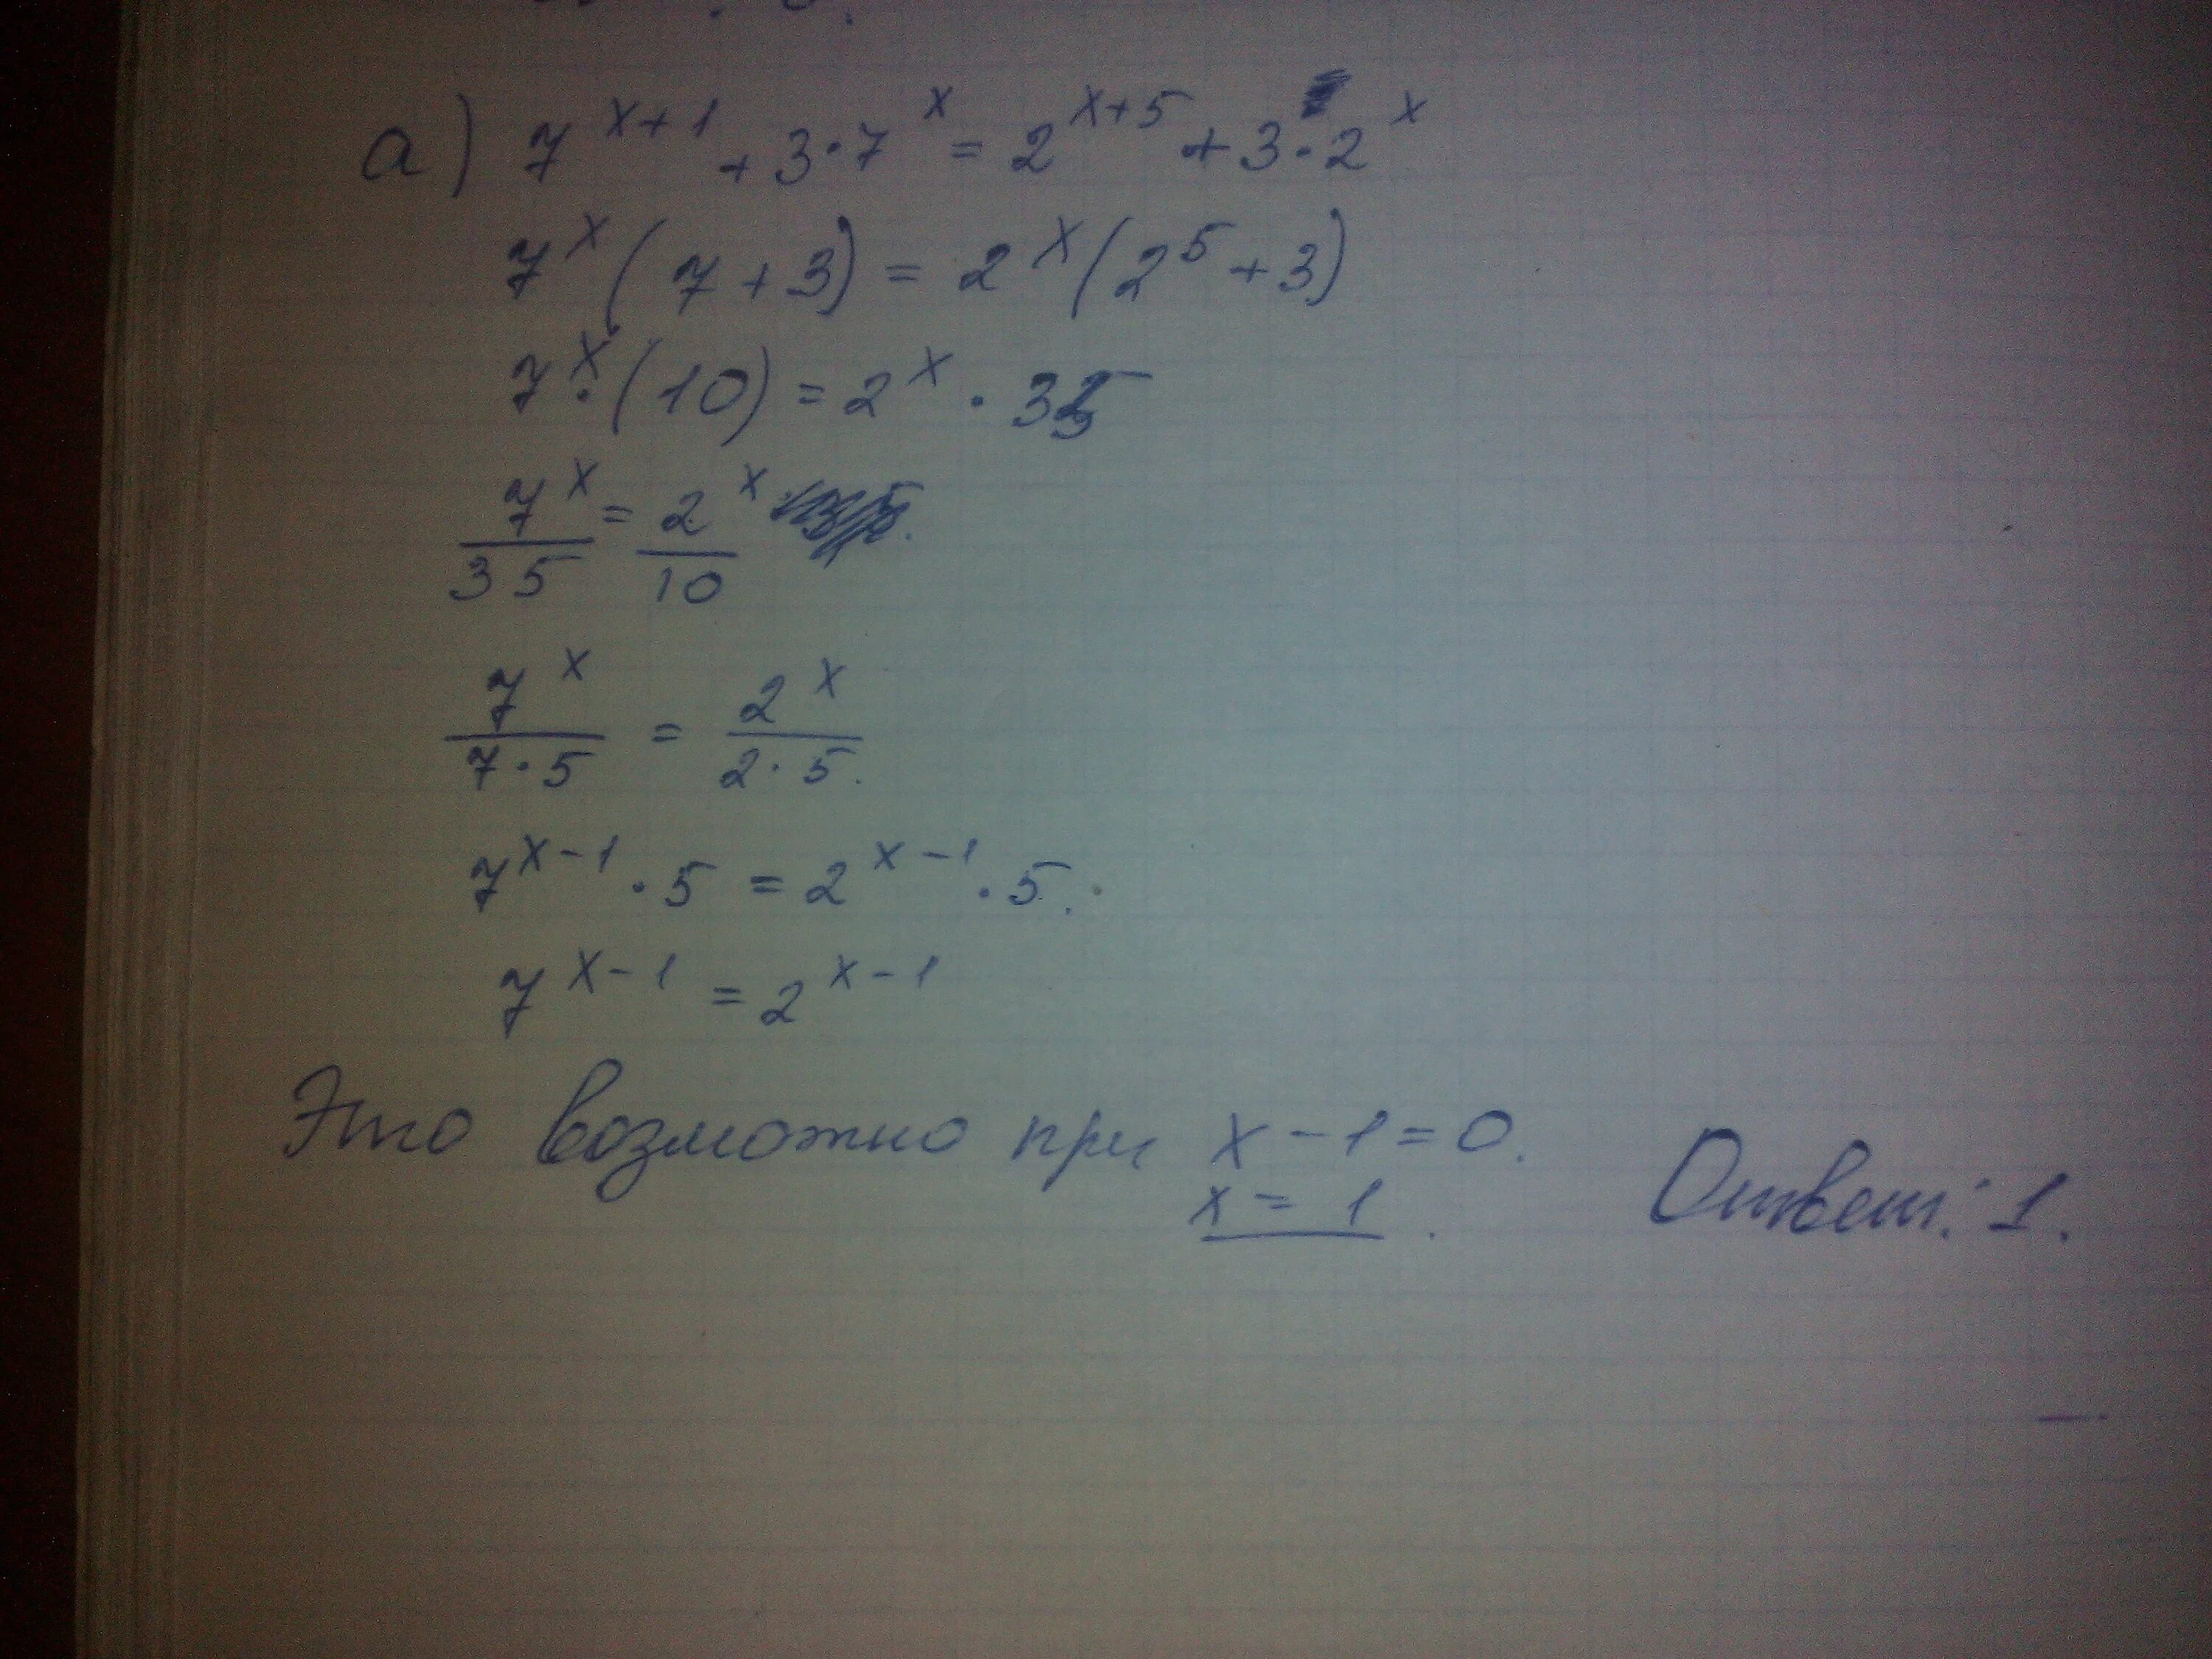 а) 7^(x+1) + 3·7^x = 2^(x+5) + 3·2^x
7^x (7+3) = 2^x (2^5+3)
7^x·(10) = 2^x · 35
7^x/35 = 2^x/10
7^x/(7·5) = 2^x/(2·5).
7^(x-1) · 5 = 2^(x-1) · 5.
7^(x-1) = 2^(x-1)
Это возможно при x-1=0.
x=1. Ответ: 1.